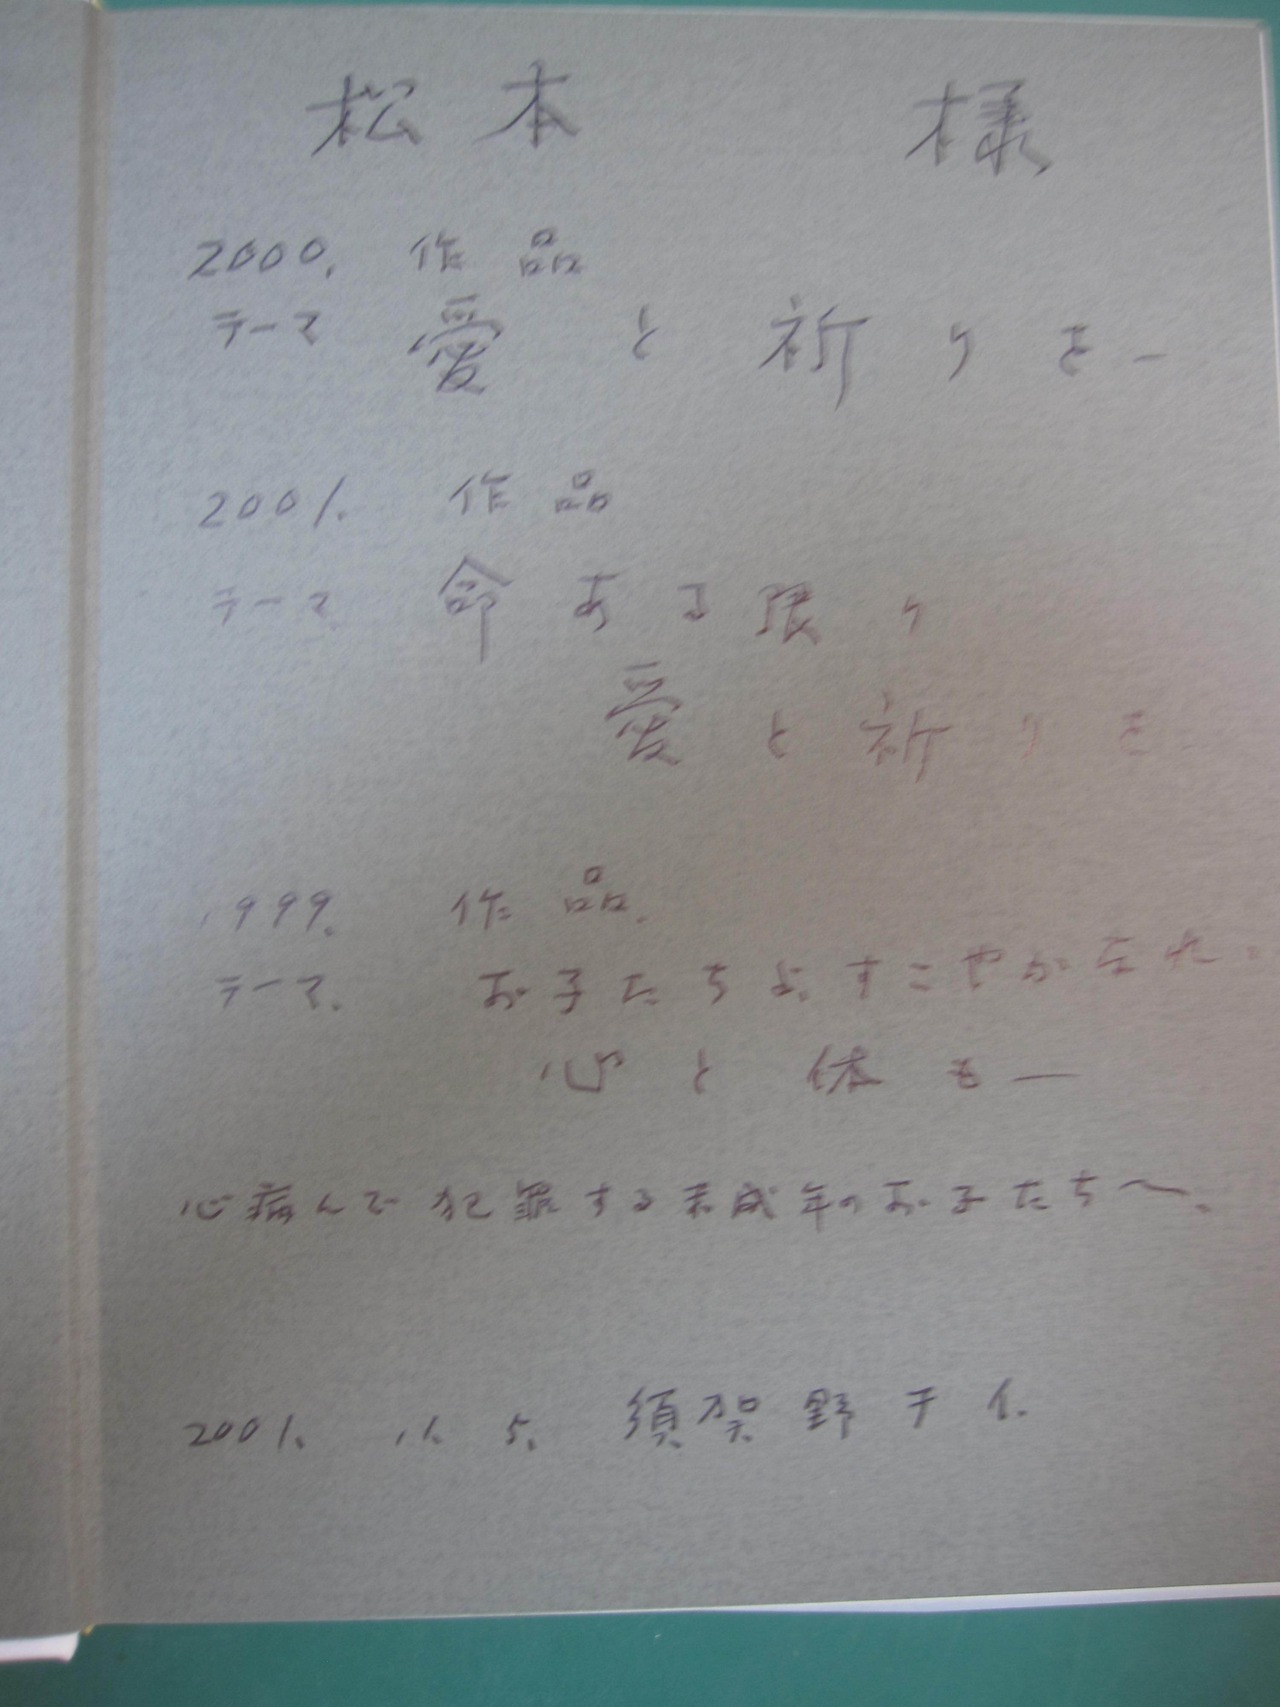 松本 様
2000. 作品
テーマ 愛と祈りを―
2001. 作品
テーマ 命ある限り
愛と祈りを
1999. 作品.
テーマ. お子たちよ、すこやかなれ.
心と体も―
心病んで犯罪する未成年のお子たちへ.
2001. 11. 5. 須賀野チイ.